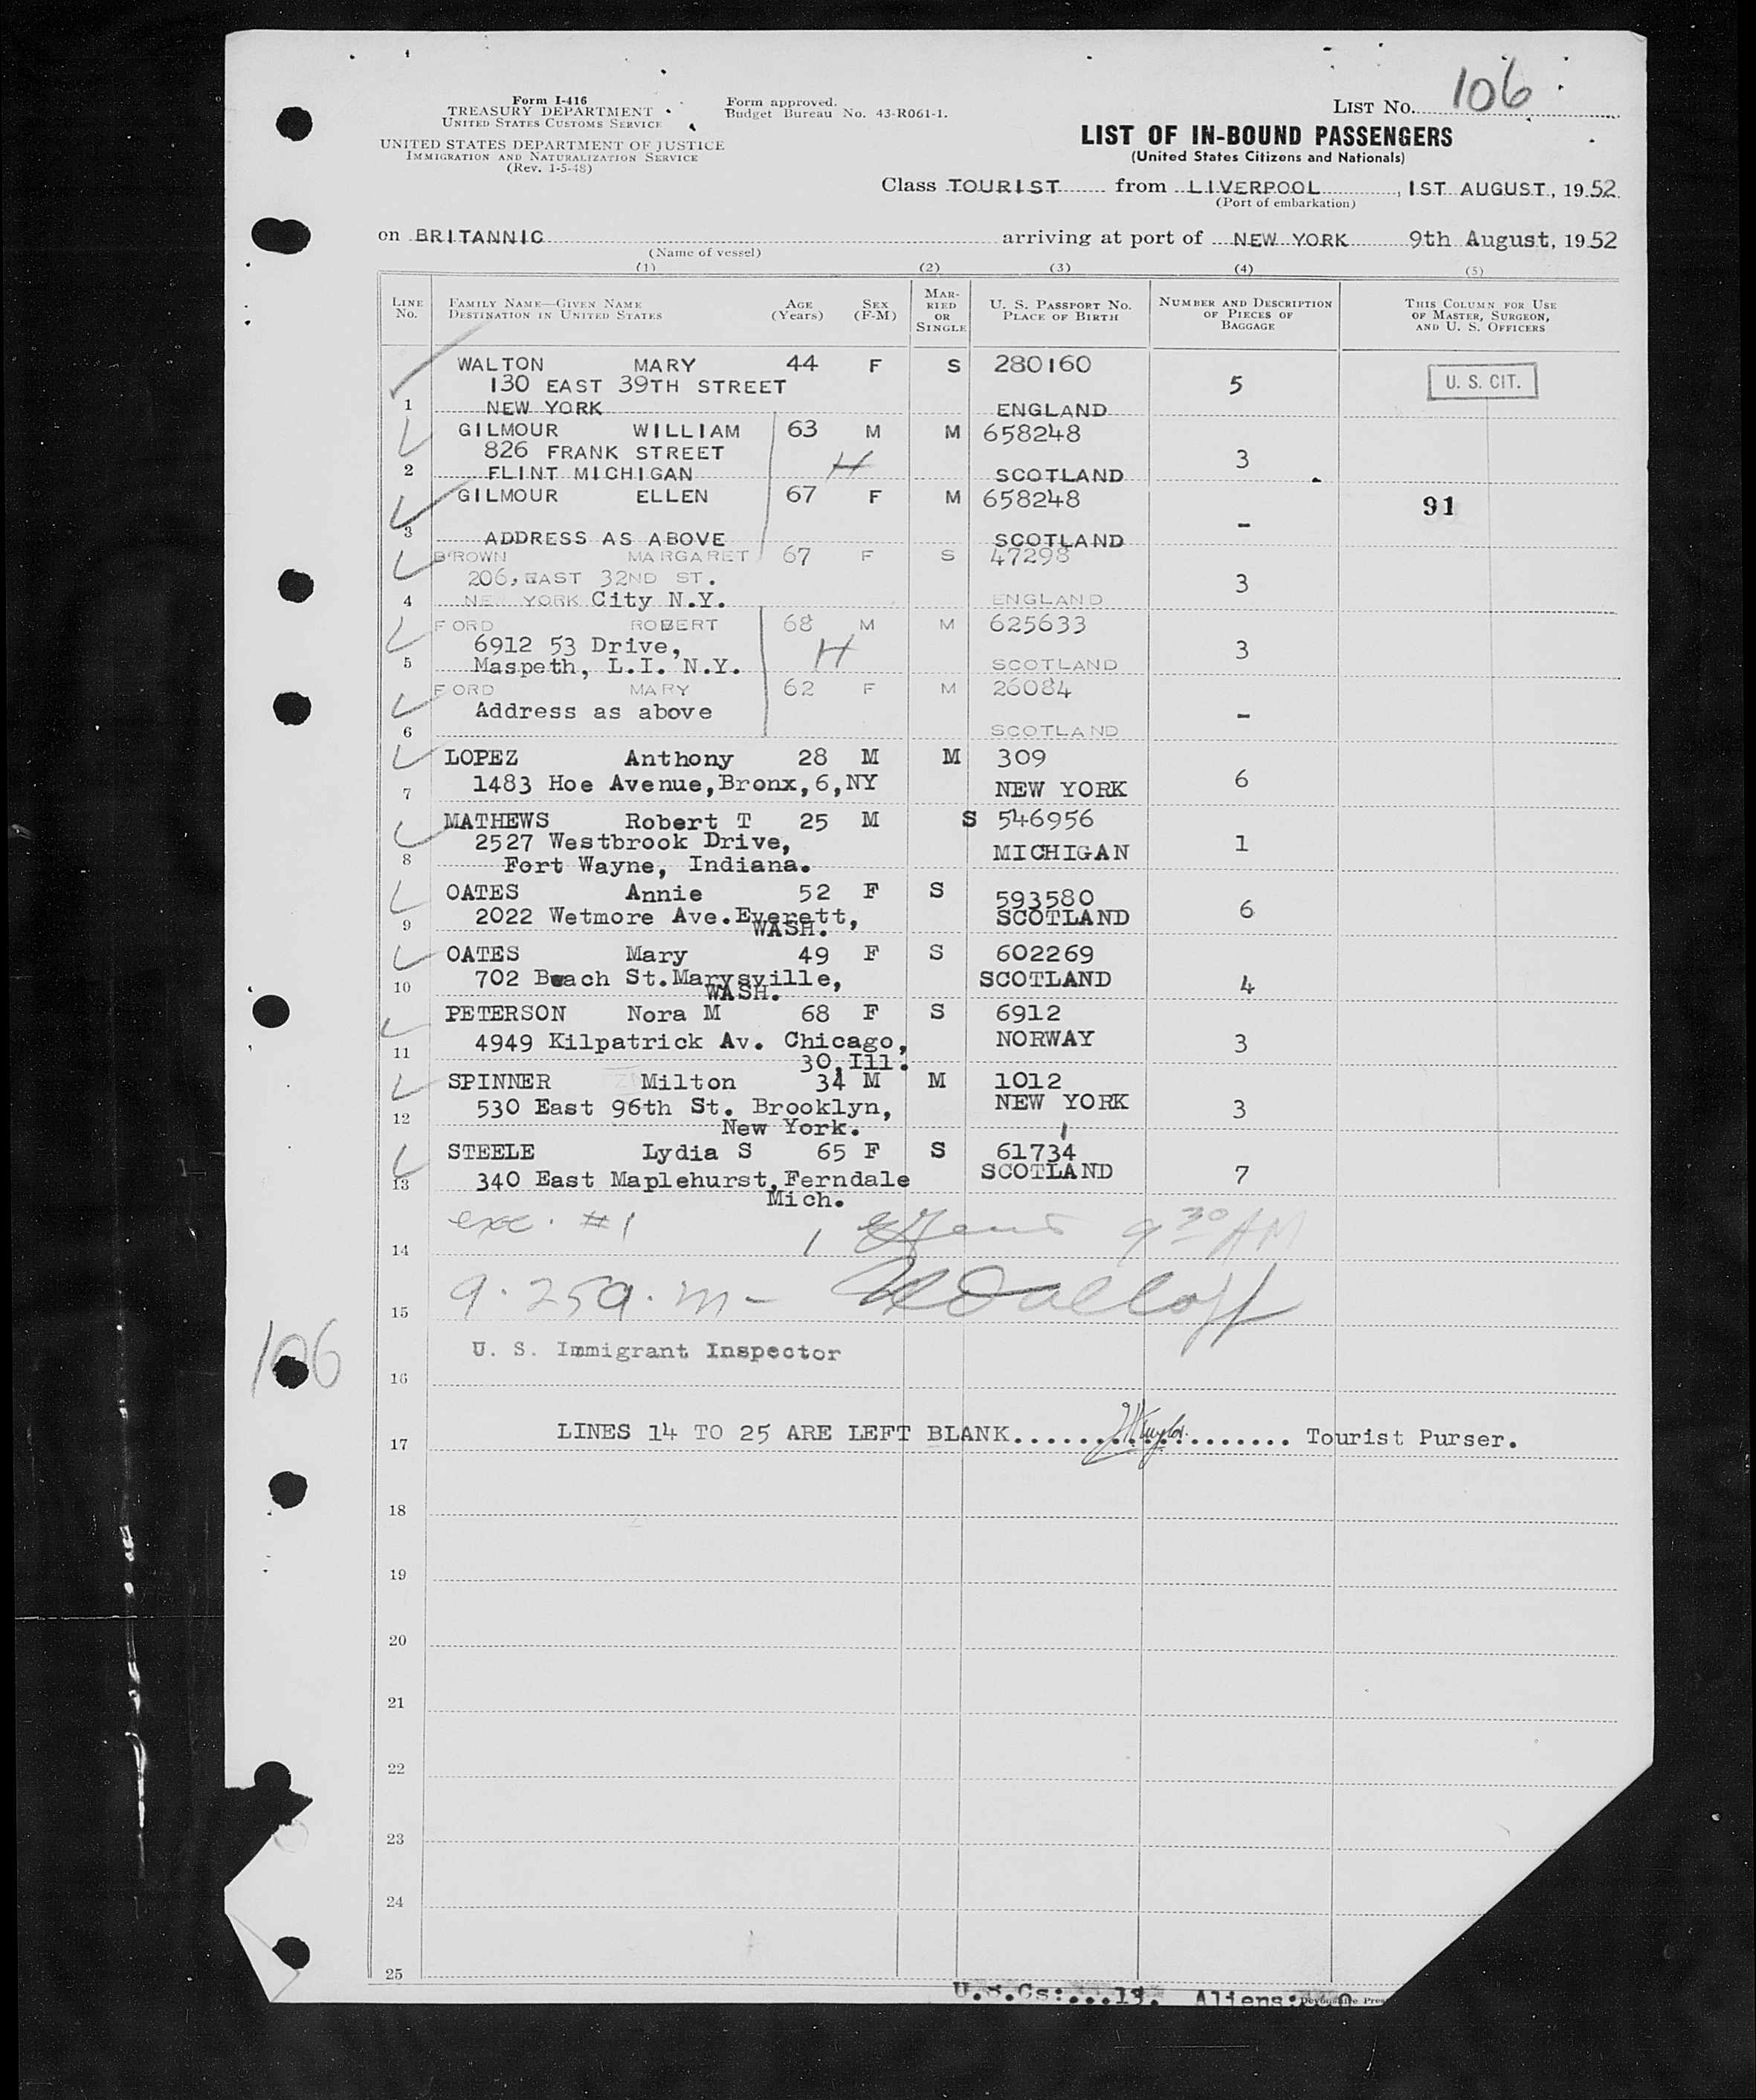 Form I-416
TREASURY DEPARTMENT
UNITED STATES CUSTOMS SERVICE
UNITED STATES DEPARTMENT OF JUSTICE
IMMIGRATION AND NATURALIZATION SERVICE
(Rev. 1-5-48)
Form approved.
Budget Bureau No. 43-R061-1.
LIST NO. 106
LIST OF IN-BOUND PASSENGERS
(United States Citizens and Nationals)
Class TOURIST from LIVERPOOL, 1ST AUGUST, 1952
(Port of embarkation)
on BRITANNIC arriving at port of NEW YORK 9th August, 1952
(Name of vessel)
(1) (2) (3) (4) (5)
LINE NO. FAMILY NAME—GIVEN NAME DESTINATION IN UNITED STATES AGE (Years) SEX (F-M) MARRIED OR SINGLE U. S. PASSPORT NO. PLACE OF BIRTH NUMBER AND DESCRIPTION OF PIECES OF BAGGAGE THIS COLUMN FOR USE OF MASTER, SURGEON, AND U. S. OFFICERS
WALTON MARY 44 F S 280160
130 EAST 39TH STREET 5 U. S. CIT.
1 NEW YORK ENGLAND
GILMOUR WILLIAM 63 M M 658248
826 FRANK STREET 3
2 FLINT MICHIGAN H SCOTLAND
GILMOUR ELLEN 67 F M 658248
91
3 ADDRESS AS ABOVE SCOTLAND -
BROWN MARGARET 67 F S 47298
206, EAST 32ND ST. 3
4 NEW YORK City N.Y. ENGLAND
FORD ROBERT 68 M M 625633
6912 53 Drive, H 3
5 Maspeth, L.I. N.Y. SCOTLAND
FORD MARY 62 F M 26084
Address as above -
6 SCOTLAND
LOPEZ Anthony 28 M M 309
7 1483 Hoe Avenue,Bronx,6,NY NEW YORK 6
MATHEWS Robert T 25 M S 546956
2527 Westbrook Drive, MICHIGAN 1
8 Fort Wayne, Indiana.
OATES Annie 52 F S 593580
9 2022 Wetmore Ave.Everett, SCOTLAND 6
WASH.
OATES Mary 49 F S 602269
10 702 Beach St.Marysville, SCOTLAND 4
WASH.
PETERSON Nora M 68 F S 6912
11 4949 Kilpatrick Av. Chicago, NORWAY 3
30,Ill.
SPINNER Milton 34 M M 1012
12 530 East 96th St. Brooklyn, NEW YORK 3
New York.
STEELE Lydia S 65 F S 61734
13 340 East Maplehurst,Ferndale SCOTLAND 7
Mich.
exc. #1 9 30 AM
14
15 9.25 a.m-
U. S. Immigrant Inspector
106
16
17 LINES 14 TO 25 ARE LEFT BLANK.................... Tourist Purser.
18
19
20
21
22
23
24
25
U.S.Cs:...13. Aliens: